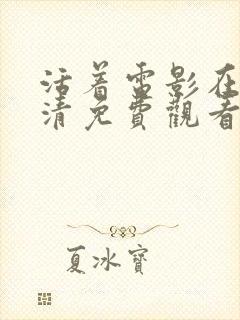 活着雷影在
清免費觀看
夏冰寶